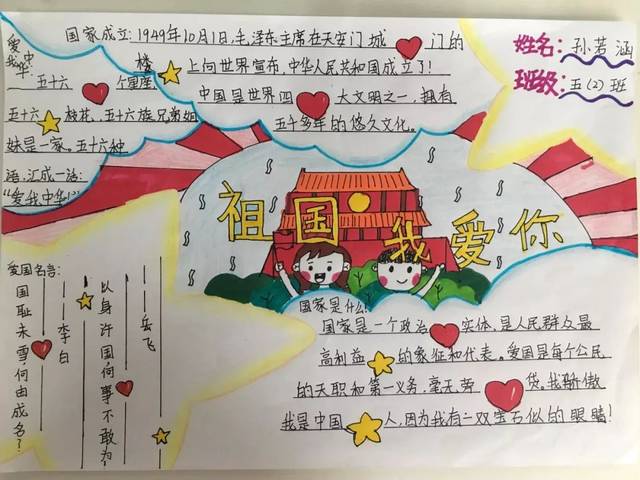 国家成立:1949年10月1日,毛泽东主席在天安门城门的
楼上向世界宣布,中华人民共和国成立了!
中国是世界四大文明之一,拥有
五千多年的悠久文化。
姓名:孙若涵
班级:五(2)班
爱我中华:
五十六个星座,
五十六枝花,五十六族兄弟姐
妹是一家。五十六种
语,汇成一话:
“爱我中华!”
祖国我爱你
爱国名言:
国耻未雪,何由成名?
——李白
以身许国,何事不敢为
——岳飞
国家是什么:
国家是一个政治实体,是人民群众最
高利益的象征和代表。爱国是每个公民
的天职和第一义务,毫无劳贷。我骄傲
我是中国人,因为我有一双宝石似的眼睛!